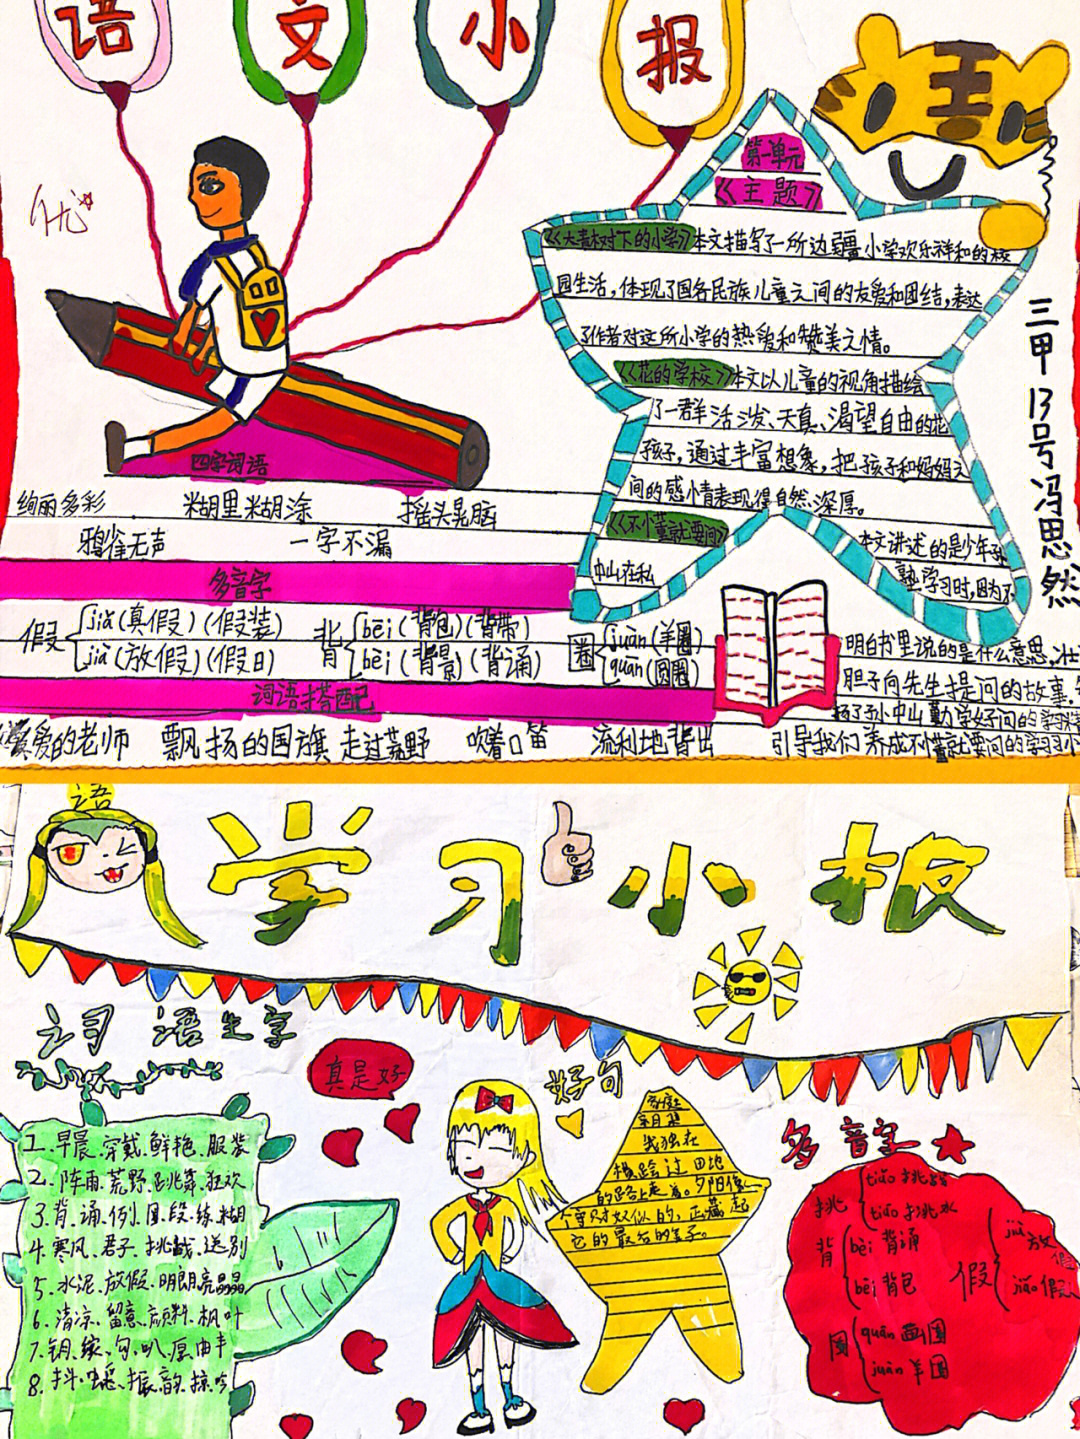 语文小报
优
第一单元
《主题》
《大青树下的小学》本文描写了一所边疆小学欢乐祥和的校
园生活，体现了国各民族儿童之间的友爱和团结，表达
了作者对这所小学的热爱和赞美之情。
《花的学校》本文以儿童的视角描绘
了一群活泼、天真、渴望自由的花
孩子，通过丰富想象，把孩子和妈妈之
间的感情表现得自然、深厚。
《不懂就要问》
本文讲述的是少年孙
中山在私
塾学习时，因为不
明白书里说的是什么意思，壮
胆子向先生提问的故事，
扬了孙中山勤学好问的学习
引导我们养成不懂就要问的学习
三甲13号冯思然
四字词语
绚丽多彩 糊里糊涂 摇头晃脑
鸦雀无声 一字不漏
多音字
假 jiǎ(真假)(假装)
jià(放假)(假日)
背 bēi(背包)(背带)
bèi(背景)(背诵)
圈 juàn(羊圈)
quān(圆圈)
词语搭配
爱的老师 飘扬的国旗 走过荒野 吹着口笛 流利地背出
语
学习小报
词语生字
1.早晨、穿戴、鲜艳、服装
2.阵雨、荒野、跳舞、狂欢
3.背、诵、例、圈、段、练、糊
4.寒风、君子、挑战、送别
5.水泥、放假、明朗
6.清凉、留意、颜料、枫叶
7.钥、缘、勾、叭、厚、曲、丰
8.抖、振、韵、掠、吟
真是好
好句
我独在
横跨过田地
的路上走着。夕阳像
守财奴似的，正藏起
它的最后的金子。
多音字
挑 tiǎo 挑战
tiāo 挑水
背 bèi 背诵
bēi 背包
假 jià 放假
jiǎ 假
圈 quān 画圈
juàn 羊圈